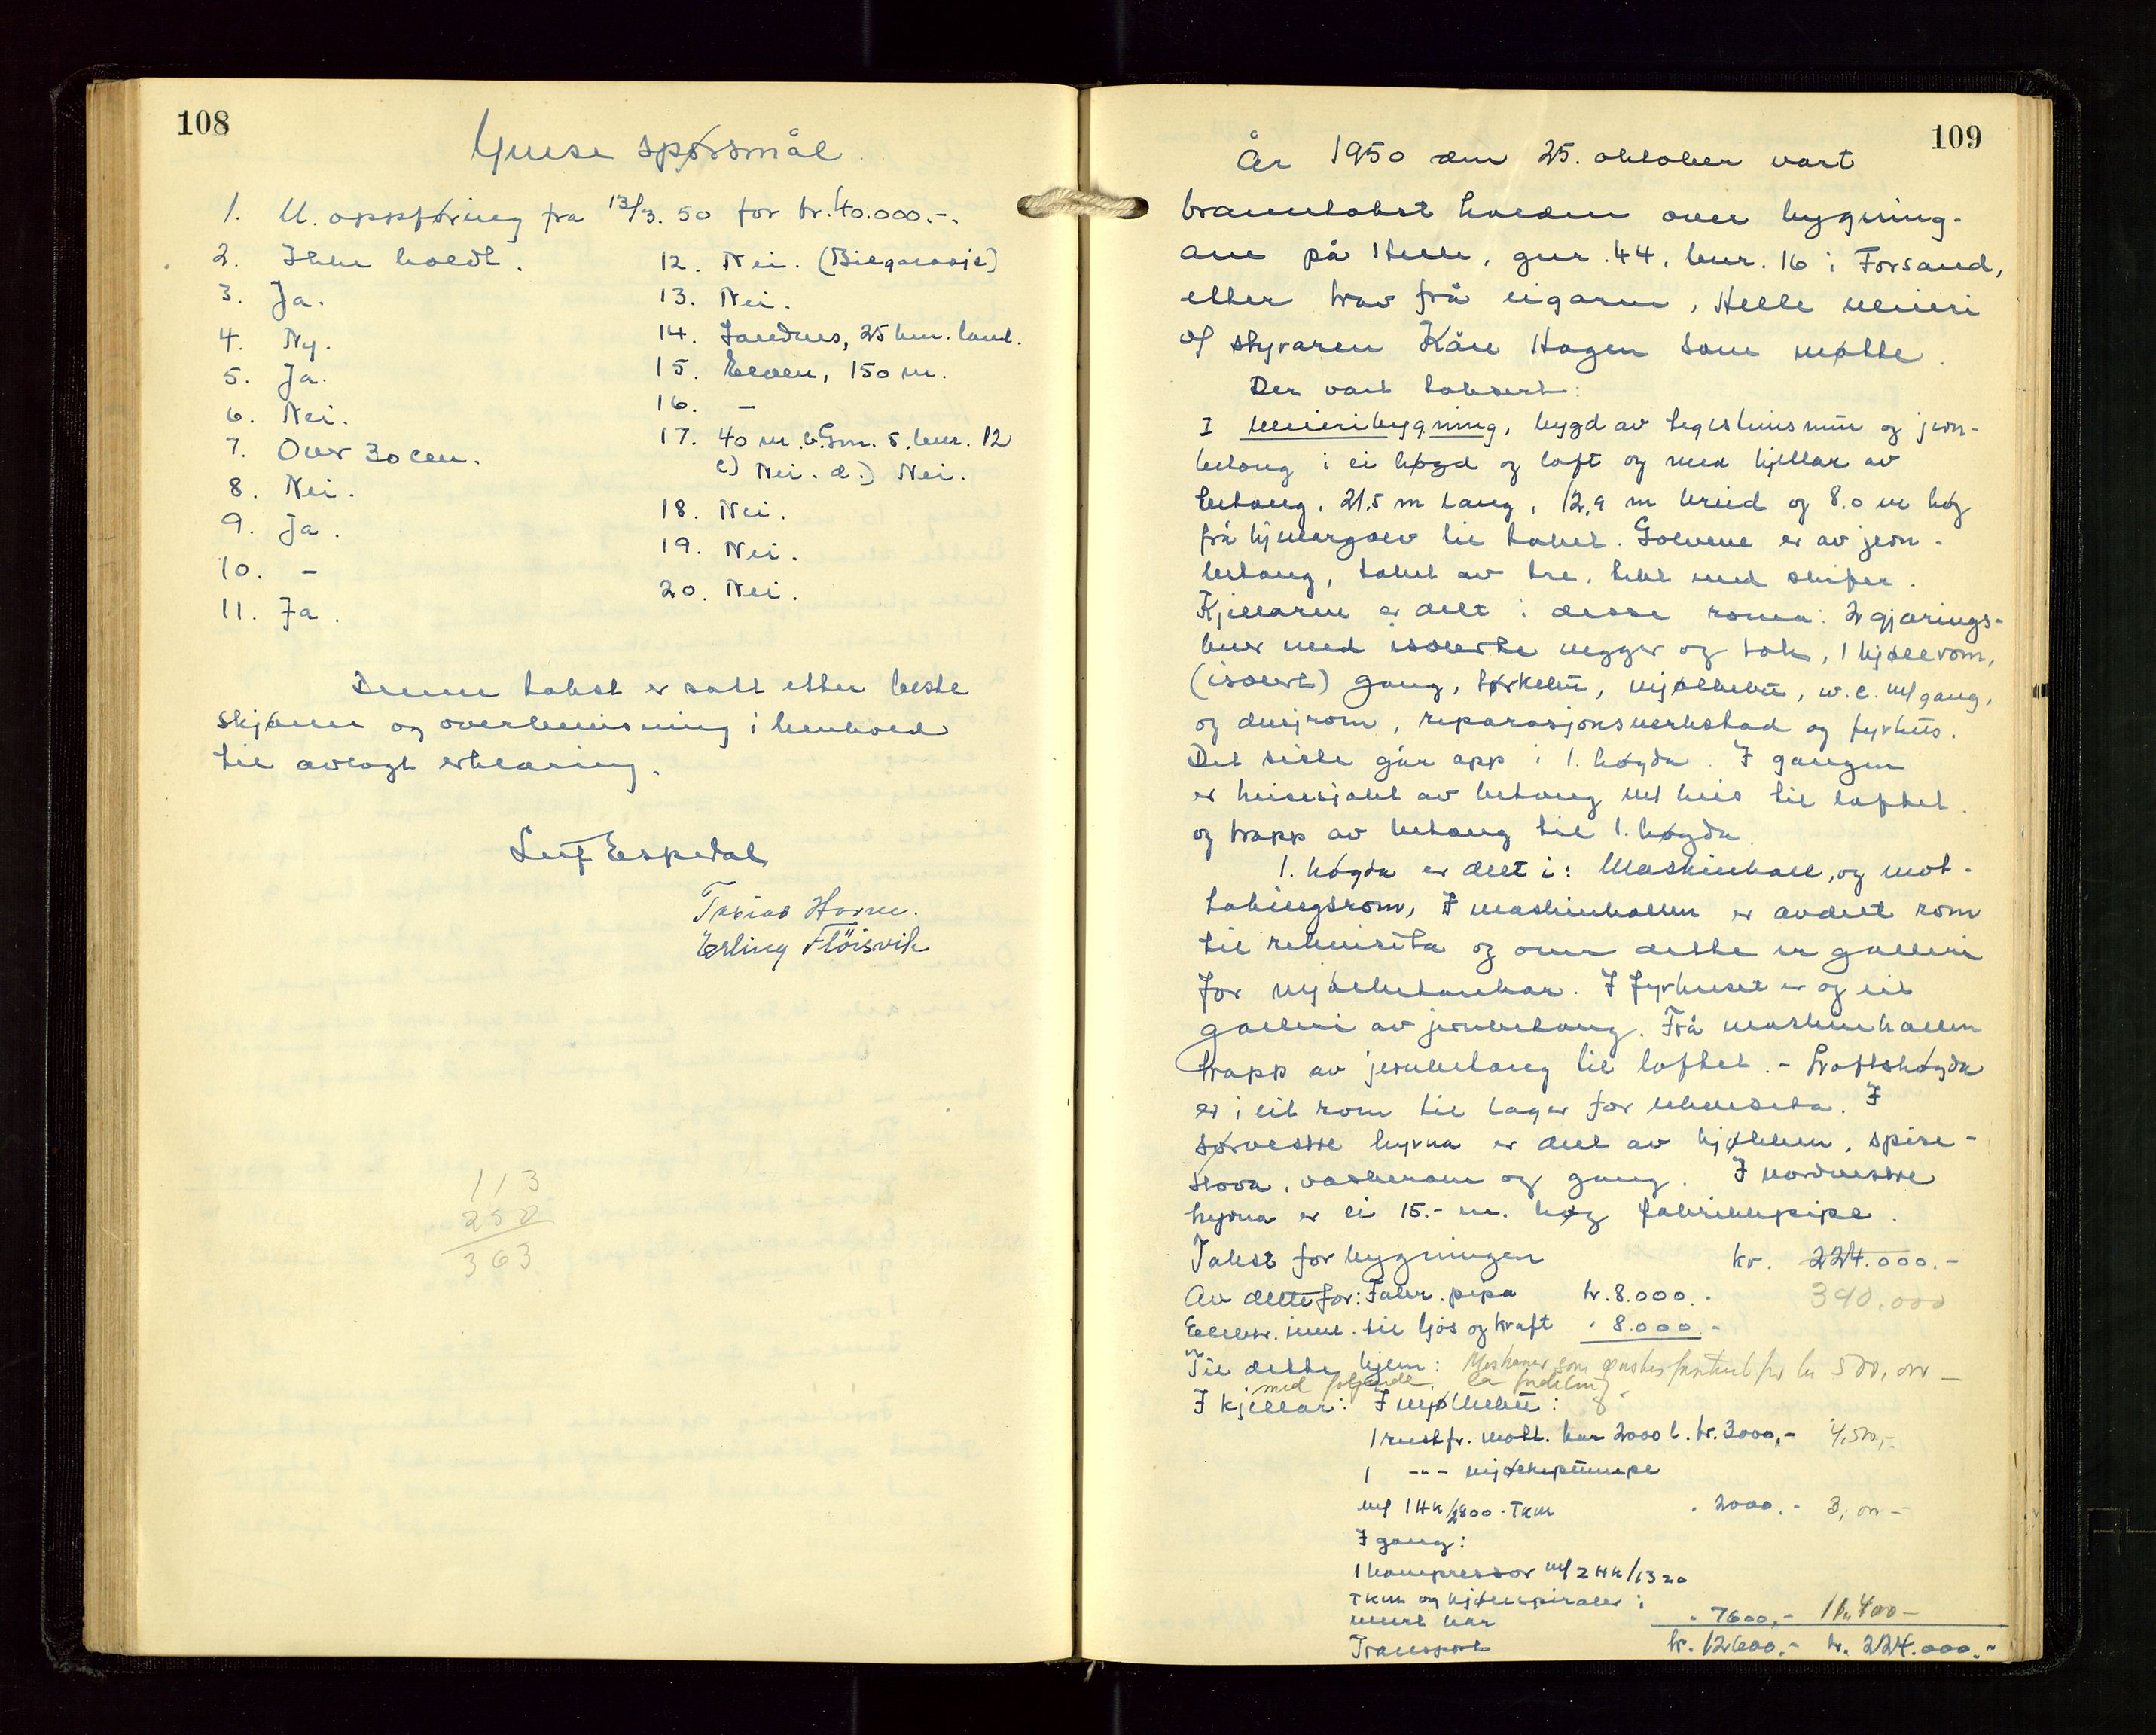 108
Ymse spørsmål
1. U. oppføring fra 13/3. 50 for kr. 40.000.-.
2. Ikke holdt.
3. Ja.
4. Ny.
5. Ja.
6. Nei.
7. Over 30 cm.
8. Nei.
9. Ja.
10. -
11. Ja.
12. Nei. (Bilgarasje)
13. Nei.
14. Sandnes, 25 km. land.
15. Elven, 150 m.
16. -
17. 40 m. b. Gnr. 5. bnr. 12
c) Nei. d.) Nei.
18. Nei.
19. Nei.
20. Nei.
Denne takst er satt etter beste
skjønn og overbevisning i henhold
til avlagt erklæring.
Leif Espedal
Tobias Homme.
Erling Fløisvik
113
250
363
109
År 1950 den 25. oktober vart
branntakst halden over bygning-
ane på Helle, gnr. 44, bnr. 16 i Forsand,
etter krav frå eigaren, Helle meieri
v/ styraren Kåre Hagen som møtte.
Der vart taksert:
I Meieribygning, bygd av teglsteinsmur og jern-
betong i ei høgd og loft og med kjellar av
betong, 21,5 m lang, 12,9 m breid og 8.0 m høg
frå kjellargolv til taket. Golvene er av jern-
betong, taket av tre, tekt med skifer.
Kjellaren er delt i desse roma: 2 gjærings-
buer med isolerte vegger og tak, 1 kjølerom,
(isolert) gang, tørkebu, mjølkebu, w.c. m/ gang,
og dusjrom, reparasjonsverkstad og fyrhus.
Det siste går opp i 1. høgda. I gangen
er heisesjakt av betong m/ heis til loftet.
og trapp av betong til 1. høgda.
1. høgda er delt i: Maskinhall, og mot-
takingsrom, I maskinhallen er avdelt rom
til rekvisita og over dette er galleri
for mjølketankar. I fyrhuset er og eit
galleri av jernbetong. Frå maskinhallen
trapp av jernbetong til loftet. - Loftshøgda
er i eit rom til lager for rekvisita. I
sørvestre hyrna er delt av kjøkken, spise-
stova, vaskerom og gang. I nordvestre
hyrna er ei 15.- m. høg fabrikkpipe.
Takst for bygningen kr. 224.000.-
Av dette for: Fabr. pipa kr. 8.000.- 340.000
Elektr. innl. til ljos og kraft " 8.000.-
Til dette kjem: Maskiner som ønskes forsikret for kr
med følgende fordeling
I kjellar: I mjølkebu:
1 rustfr. mott. kar 2000 l. kr. 3000,- 4,500,-
1 -"- mjølkepumpe
m/ 1 Hk/2800 Tkm " 2000.-
I gang:
1 kompressor m/ 2 Hk/1320
Tkm og kjølespiraler i
" 7600,- 11,400 -
Transport kr. 12600.- kr. 224.000.-